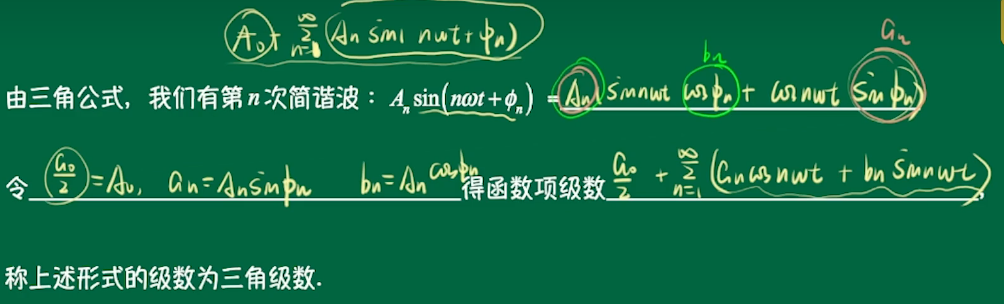 A₀ + ∑_{n=1}^{∞} (Aₙ sin nωt + φₙ)
bₙ aₙ
由三角公式，我们有第n次简谐波：Aₙ sin(nωt+ϕₙ) = Aₙ(sin nωt cos φₙ + cos nωt sin φₙ)
令 a₀/2 = A₀, aₙ = Aₙ sin φₙ bₙ = Aₙ cos φₙ 得函数项级数 a₀/2 + ∑_{n=1}^{∞} (aₙ cos nωt + bₙ sin nωt),
称上述形式的级数为三角级数.